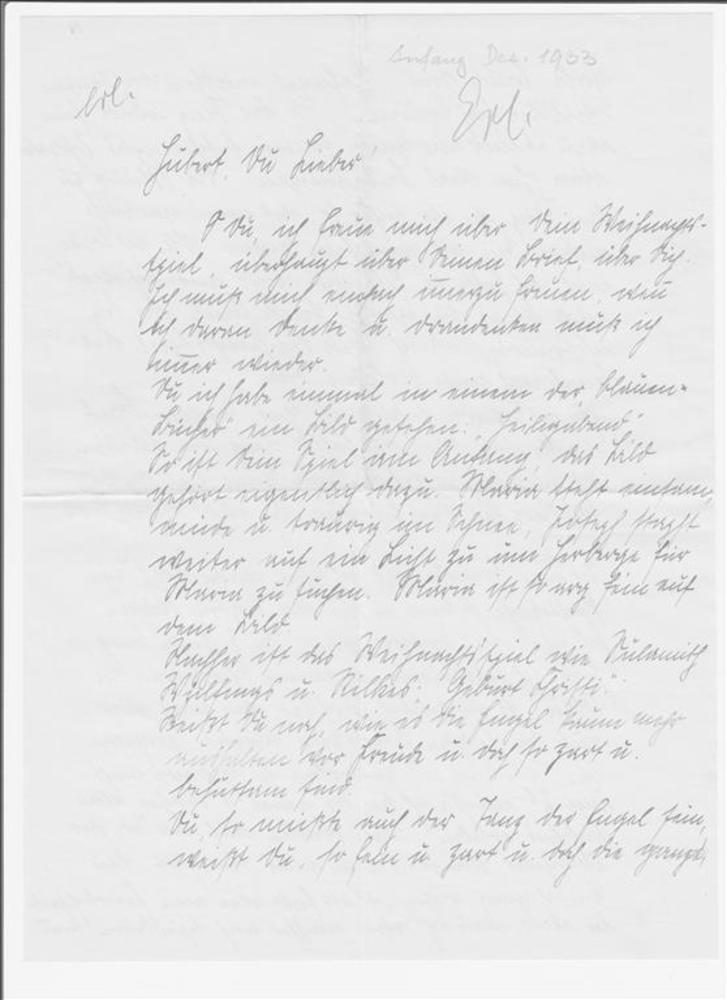 Anfang Dez. 1933
erl.
Erl.
Hubert, Du Lieber
O Du, ich freue mich über Dein Weihnachts-
spiel, überhaupt über Deinen Brief, über Dich.
Ich muß mich einfach immerzu freuen, wenn
ich daran denke u. drandenken muß ich
immer wieder.
Du ich habe einmal in einem der "blauen-
Bücher" ein Bild gesehen: "Heiligabend"
So ist Dein Spiel am Anfang, das Bild
gehört eigentlich dazu. Maria steht einsam,
müde u. traurig im Schnee, Joseph stapft
weiter auf ein Licht zu um Herberge für
Maria zu suchen. Maria ist so arg fein auf
dem Bild.
Nachher ist das Weihnachtsspiel wie Sulamith
Wülfings u. Rilkes: "Geburt Christi".
Weißt Du noch, wie es die Engel kaum mehr
aushalten vor Freude u. doch so zart u.
behutsam sind.
Du, so müßte auch der Tanz der Engel sein,
weißt Du, so fein u. zart u. doch die ganze